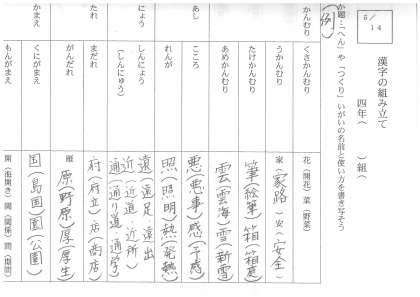 5/14
漢字の組み立て
四年( )組(
か題…「へん」や「つくり」いがいの名前と使い方を書き写そう
(例)
かんむり
くさかんむり 花(開花)菜(野菜)
うかんむり 家(家路)安(安全)
たけかんむり 筆(絵筆)箱(箱庭)
あめかんむり 雲(雲海)雪(新雪)
あし
こころ 悪(悪事)感(予感)
れんが 照(照明)熱(発熱)
にょう
しんにょう(しんにゅう) 遠(遠足・遠出)近(近道・近所)通(通り道・通学)
たれ
まだれ 府(府立)店(商店)
がんだれ 原(野原)厚(厚生)
かまえ
くにがまえ 国(島国)園(公園)
もんがまえ 開(海開き)関(関係)間(期間)